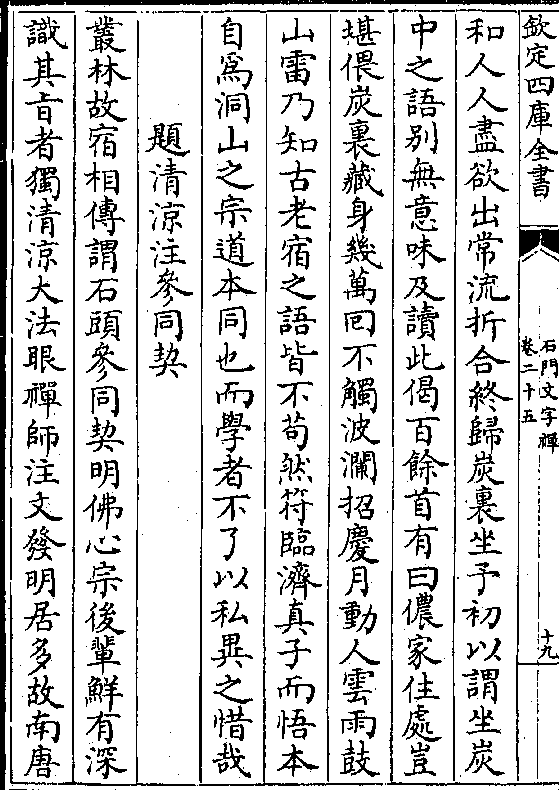 欽定四庫全書
石門文字禪
卷二十五
十九
和人人盡欲出常流折合終歸炭裏坐予初以謂坐炭
中之語別無意味及讀此偈百餘首有曰儂家住處豈
堪偎炭裏藏身幾萬回不觸波瀾招慶月動人雲雨鼓
山雷乃知古老宿之語皆不苟然符臨濟真子而悟本
自為洞山之宗道本同也而學者不了以私異之惜哉
題清涼注參同契
叢林故宿相傳謂石頭參同契明佛心宗後輩鮮有深
識其旨者獨清涼大法眼禪師注文發明居多故南唐